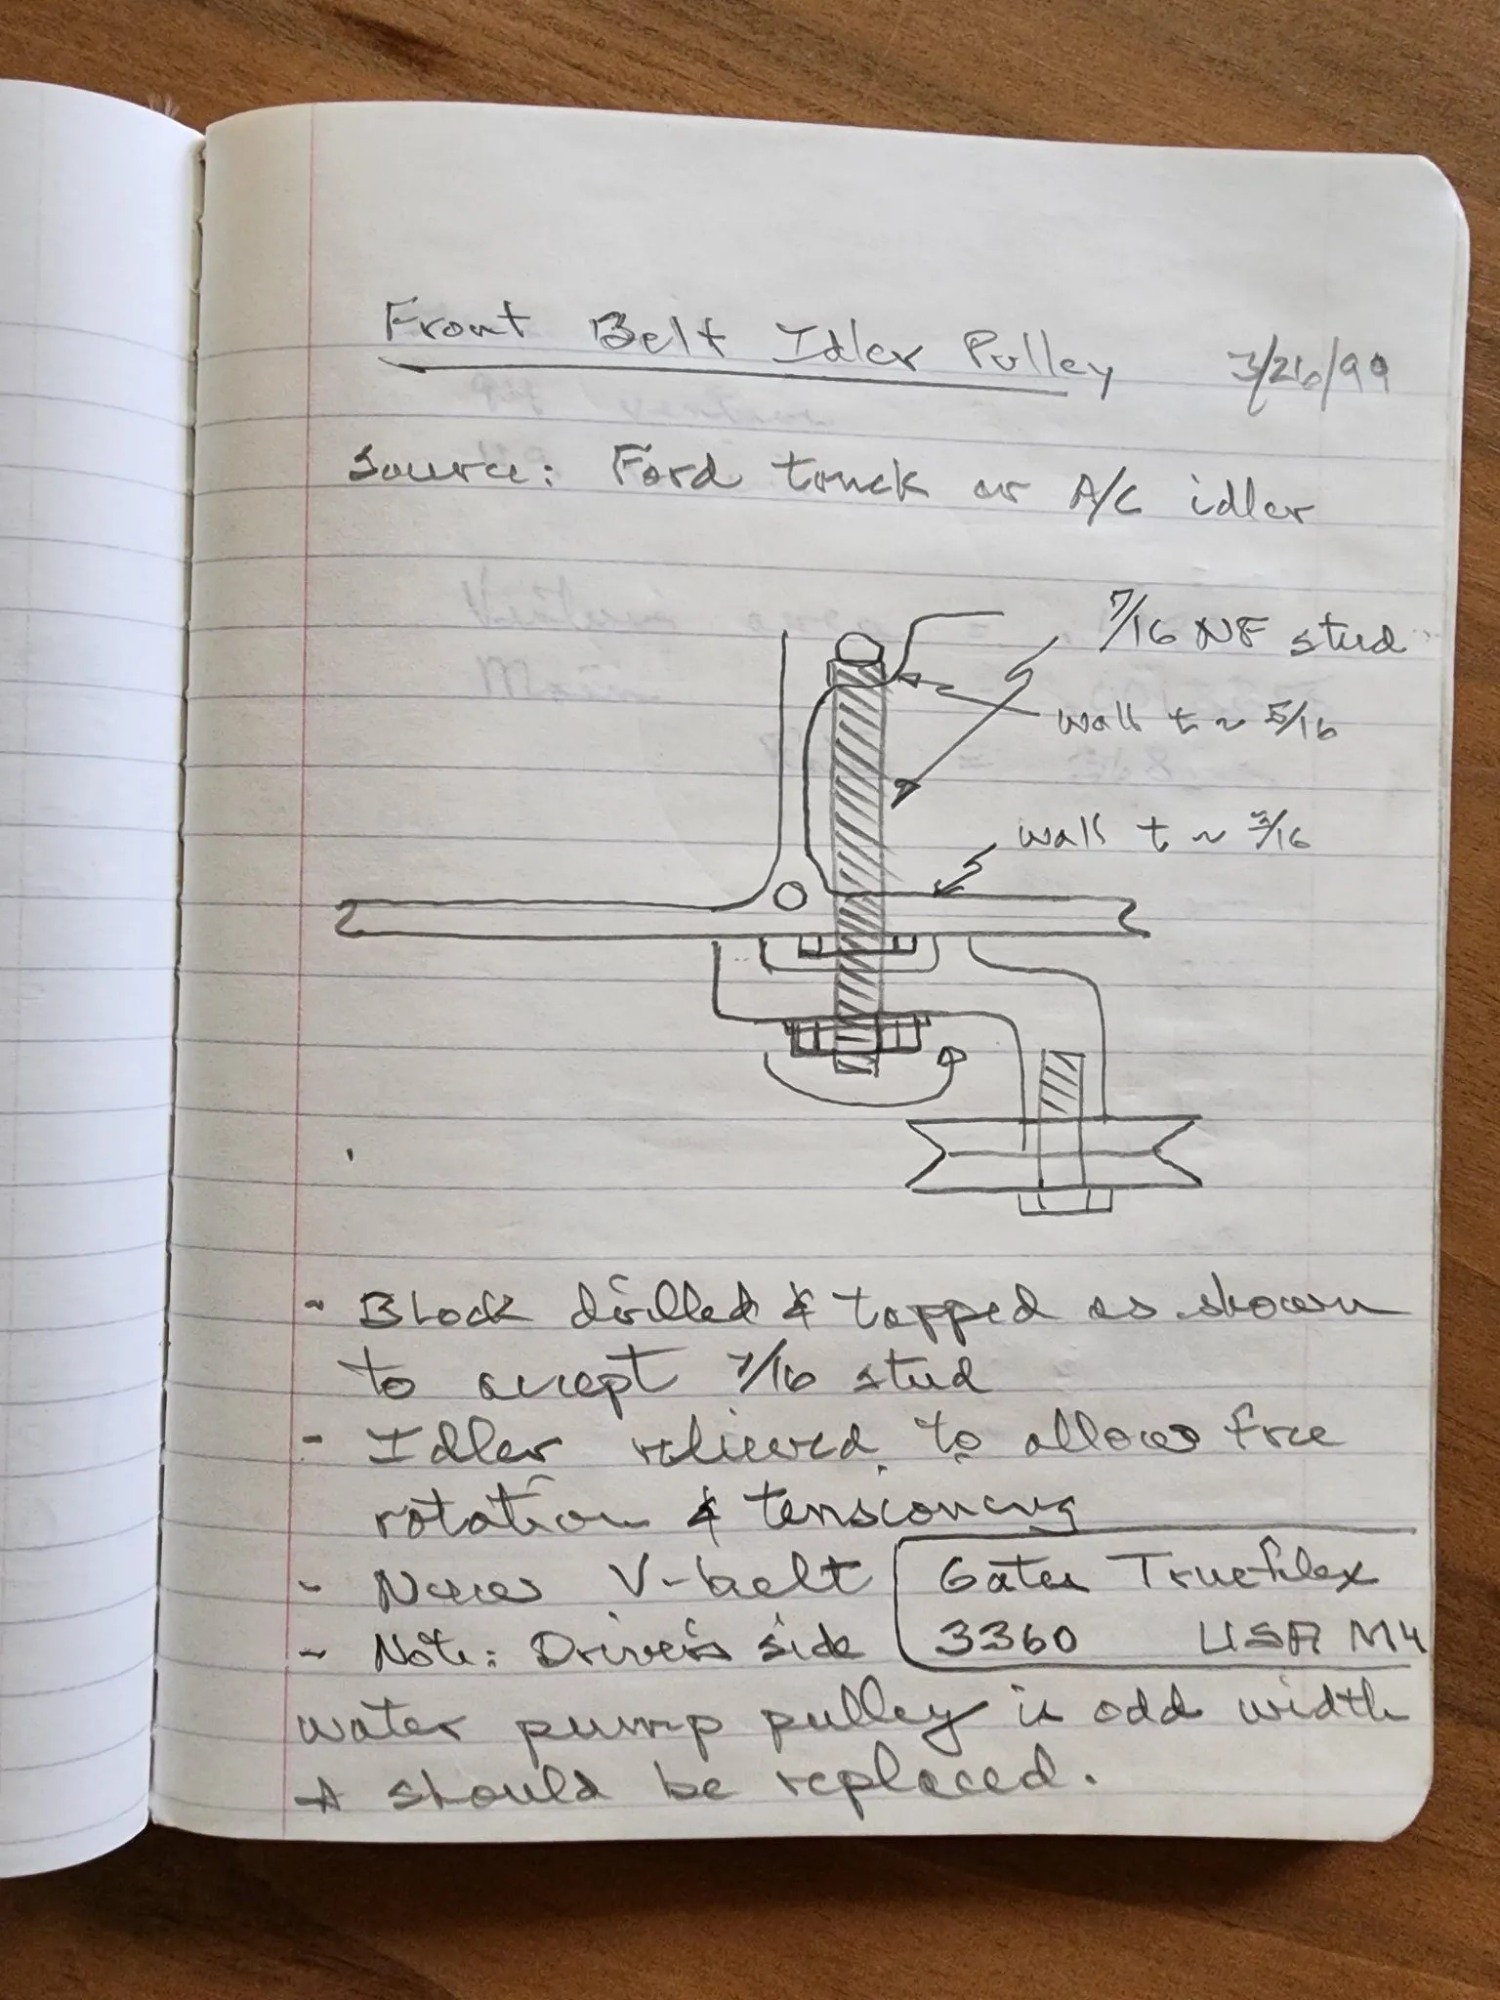 Front Belt Idler Pulley 3/26/99
Source: Ford truck or A/C idler
7/16 NF stud
wall t ~ 5/16
wall t ~ 3/16
- Block drilled & tapped as shown
to accept 7/16 stud
- Idler relieved to allow free
rotation & tensioning
- New V-belt
Gates Trueflex
3360 USA M4
- Note: Driver's side
water pump pulley is odd width
& should be replaced.